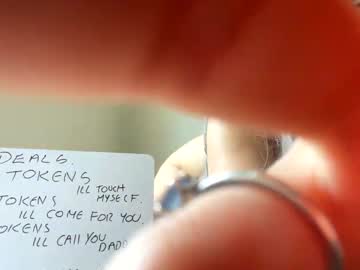 DEALS.
TOKENS
ILL TOUCH
MYSELF.
TOKENS
ILL COME FOR YOU.
TOKENS
ILL CALL YOU
DADD